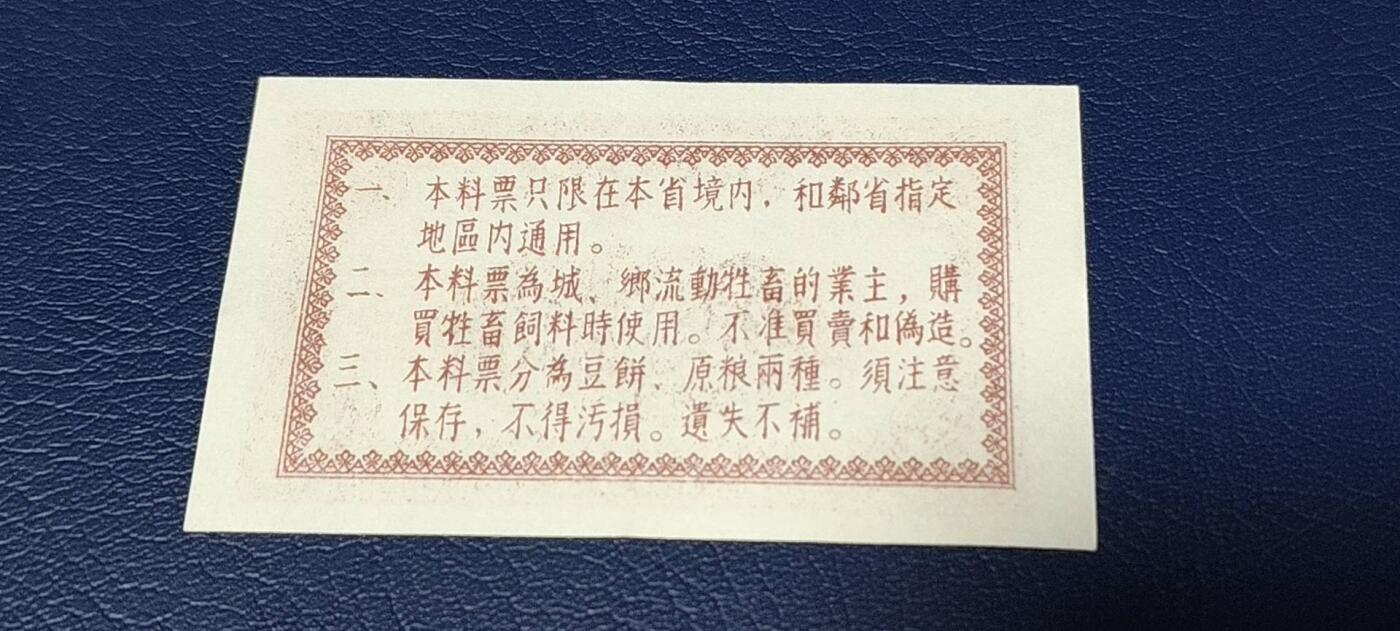 一、本料票只限在本省境内，和鄰省指定
地區内通用。
二、本料票為城、鄉流動牲畜的業主，購
買牲畜飼料時使用。不准買賣和偽造。
三、本料票分為豆餅、原粮兩種。須注意
保存，不得汚損。遺失不補。